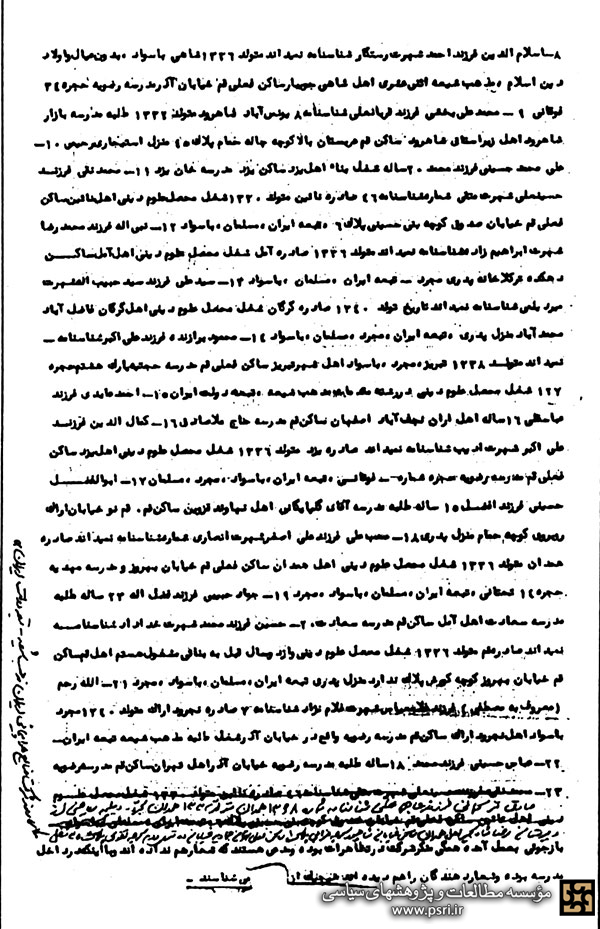 ۸ـ اسلام الدین فرزند احمد شهرت رستگار شناسنامه نمیداند متولد ۱۳۳۶ شاهی باسواد ، بدون عیال و اولاد
دین اسلام ، مذهب شیعه اثنی عشری اهل شاهی جویبار ساکن فعلی قم خیابان آذر مدرسه رضویه حجره ۳۴
فوقانی ۹ ـ محمد علی بخشی فرزند قربانعلی شناسنامه ۸ یونس آباد شاهرود متولد ۱۳۳۲ طلبه مدرسه بازار
شاهرود اهل زیراستاق شاهرود ساکن قم عربستان بالا کوچه چاله حمام پلاک ۴۰ منزل استیجاری رحیمی ۱۰ ـ
علی محمد حسینی فرزند محمد ۲۰ ساله شغل بناء اهل یزد ساکن یزد مدرسه خان یزد ۱۱ ـ محمد تقی فرزند
حسینعلی شهرت متقی شماره شناسنامه ۴۶ صادره نائین متولد ۱۳۳۰ شغل محصل علوم دینی اهل نائین ساکن
فعلی قم خیابان صدوق کوچه بنی حسینی پلاک ۶ ، تبعه ایران ، مسلمان ، باسواد ۱۲ ـ نبی اله فرزند محمد رضا
شهرت ابراهیم زاده شناسنامه نمیداند متولد ۱۳۳۶ صادره آمل شغل محصل علوم دینی اهل آمل ساکن
دهکده مرکلاخانه پدری مجرد ـ تبعه ایران ، مسلمان ، باسواد ۱۳ ـ سید علی فرزند سید حبیب اله شهرت
میردیلمی شناسنامه نمیداند تاریخ تولد ۱۳۴۰ صادره گرگان شغل محصل علوم دینی اهل گرگان فاضل آباد
محمد آباد منزل پدری ، تبعه ایران ، مجرد ، مسلمان ، باسواد ۱۴ ـ محمود برازنده فرزند علی اکبر شناسنامه ـ
نمیداند متولد ۱۳۳۸ تبریز مجرد ، باسواد اهل شهر تبریز ساکن فعلی قم مدرسه حجتیه پارک هشتم حجره
۱۲۷ شغل محصل علوم دینی در رشته مذهب شیعه ، تبعه دولت ایران ۱۵ ـ احمد عابدی فرزند
عباسعلی ۱۶ ساله اهل اران نجف آباد اصفهان ساکن قم مدرسه حاج ملاصادق ۱۶ ـ کمال الدین فرزند
علی اکبر شهرت ادیب شناسنامه نمیداند صادره یزد متولد ۱۳۳۶ شغل محصل علوم دینی اهل یزد ساکن
فعلی قم مدرسه رضویه حجره شماره ـ فوقانی ، تبعه ایران ، باسواد ، مجرد ، مسلمان ۱۷ ـ ابوالفضل
حسینی فرزند افضل ۱۵ ساله طلبه مدرسه آقای گلپایگانی اهل نهاوند قزوین ساکن قم . قم نو خیابان اراک
روبروی کوچه حمام منزل پدری ۱۸ ـ محبعلی فرزند علی اصغر شهرت انصاری شماره شناسنامه نمیداند صادره
همدان متولد ۱۳۳۶ شغل محصل علوم دینی اهل همدان ساکن فعلی قم خیابان بهروز و مدرسه مهدیه
حجره ۱۴ تحتانی ، تبعه ایران ، مسلمان ، باسواد ، مجرد ۱۹ ـ جواد حبیبی فرزند فضل اله ۲۳ ساله طلبه
مدرسه سعادت اهل آمل ساکن قم مدرسه سعادت ۲۰ ـ حسین فرزند محمد شهرت خداداد شناسنامه
نمیداند صادره قم متولد ۱۳۳۶ شغل محصل علوم دینی و از دو سال قبل به بنائی مشغول هستم اهل قم ساکن
قم خیابان بهروز کوچه کورش پلاک ندارد منزل پدری تبعه ایران ، مسلمان ، باسواد ، مجرد ۲۱ ـ الله رحم
(معروف به مصطفی) فرزند شهرت غلام نژاد شناسنامه ۷ صادره اراک متولد ۱۳۴۰ مجرد
باسواد اهل ساکن قم مدرسه رضویه واقع در خیابان آذر شغل طلبه مذهب شیعه تبعه ایران ـ
۲۲ ـ عباس حسینی فرزند محمد ۱۸ ساله طلبه خیابان آذر اهل تهران ساکن قم مدرسه رضویه
۲۳ ـ
بازجوئی بعمل آمده همگی منکر شرکت در تظاهرات بوده و مدعی هستند که شعار هم نداده اند و با اینکه در داخل
مدرسه بوده و شعار دهندگان را هم دیده اند می شناسند ـ
مؤسسه مطالعات و پژوهشهای سیاسی
www.psri.ir